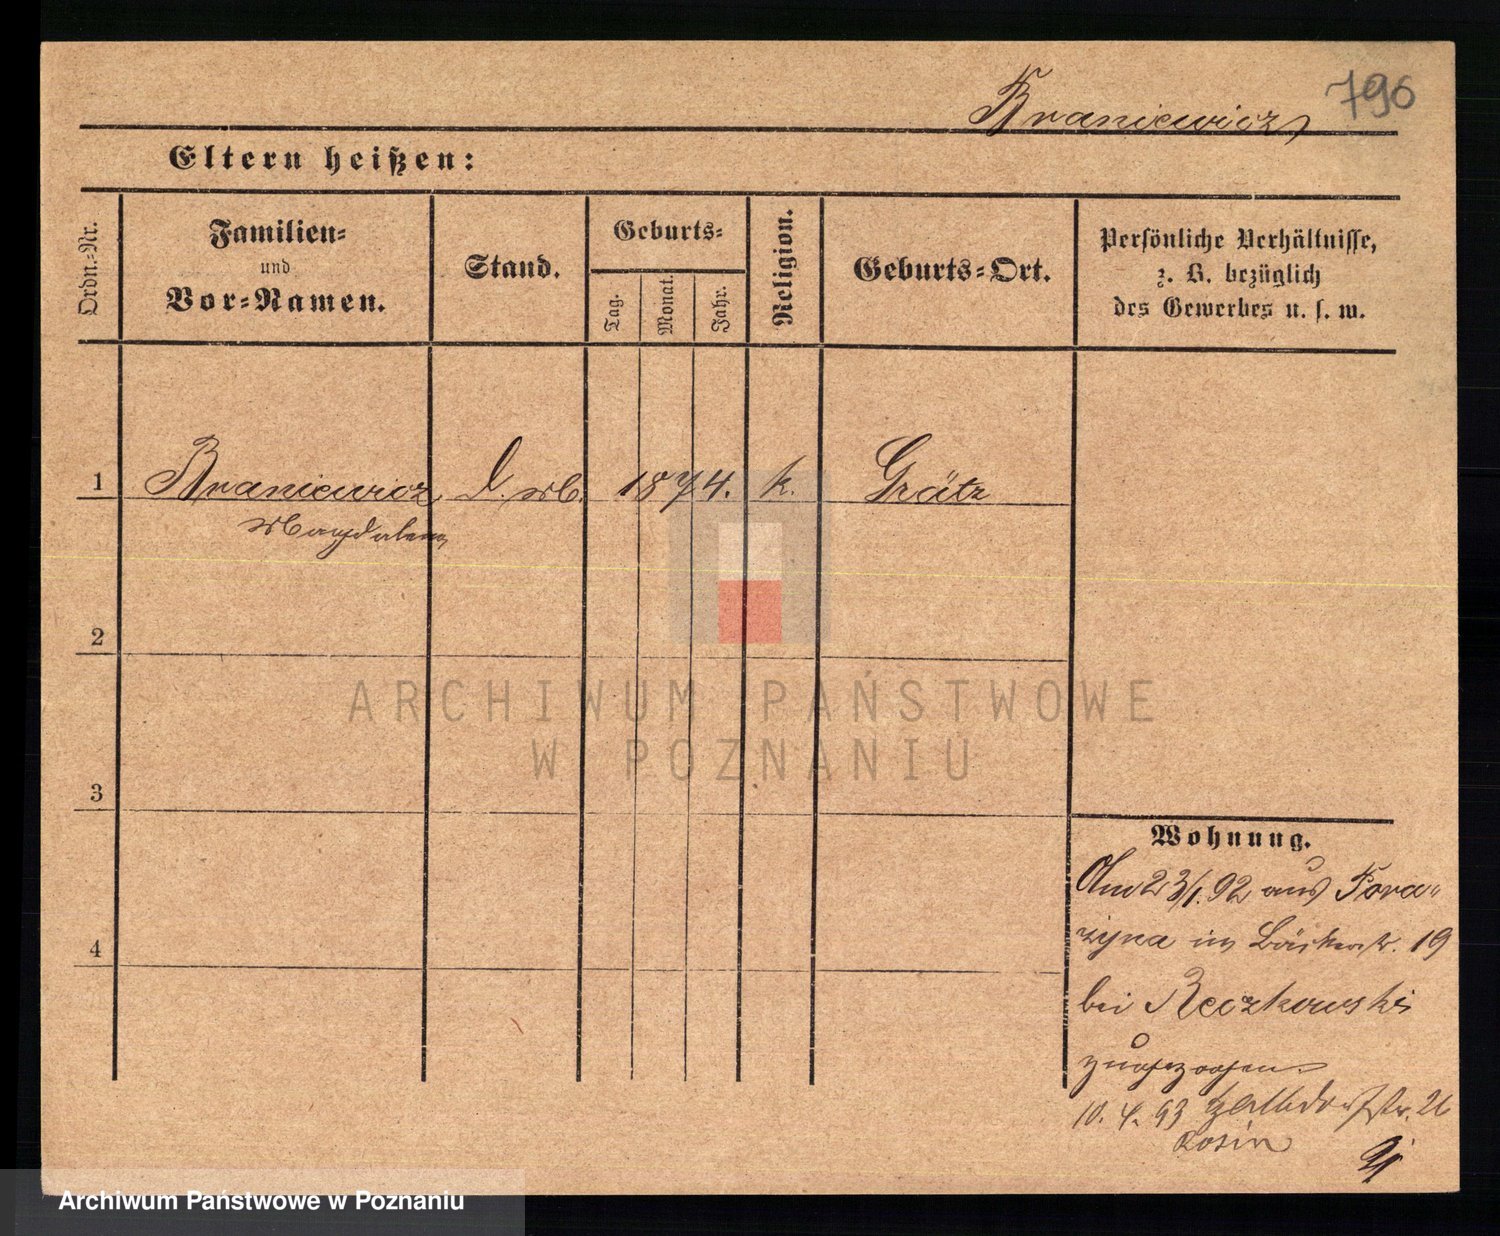 Braniewicz 796
Eltern heißen:
Ordn.-Nr.
Familien-
und
Vor-Namen.
Stand.
Geburts-
Tag.
Monat.
Jahr.
Religion.
Geburts-Ort.
Persönliche Verhältnisse,
z. B. bezüglich
des Gewerbes u. s. w.
1 Braniewicz D. M. 1874. k. Grätz
Magdalena
2
3
4
ARCHIWUM PAŃSTWOWE
W POZNANIU
Wohnung.
Am 23/1. 92 aus
in Bäckerstr. 19
bei Reczkowski
zugezogen
10. 4. 93
Archiwum Państwowe w Poznaniu